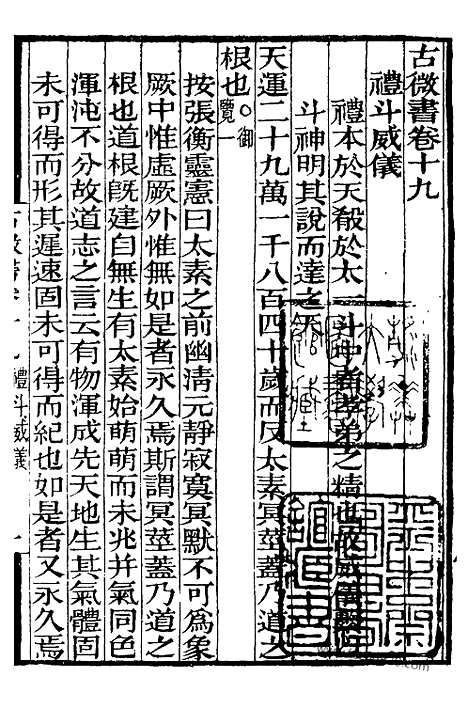 古微書卷十九
禮斗威儀
禮本於天殽於太一斗中者孝弟之精也故威儀
斗神明其說而達之天
天運二十九萬一千八百四十歲而反太素冥莖蓋乃道之
根也〇御覽一
按張衡靈憲曰太素之前幽清元靜寂寞冥默不可為象
厥中惟虛厥外惟無如是者永久焉斯謂冥莖蓋乃道之
根也道根旣建自無生有太素始萌萌而未兆并氣同色
渾沌不分故道志之言云有物渾成先天地生其氣體固
未可得而形其遲速固未可得而紀也如是者又永久焉
古微書卷十九 禮斗威儀 一